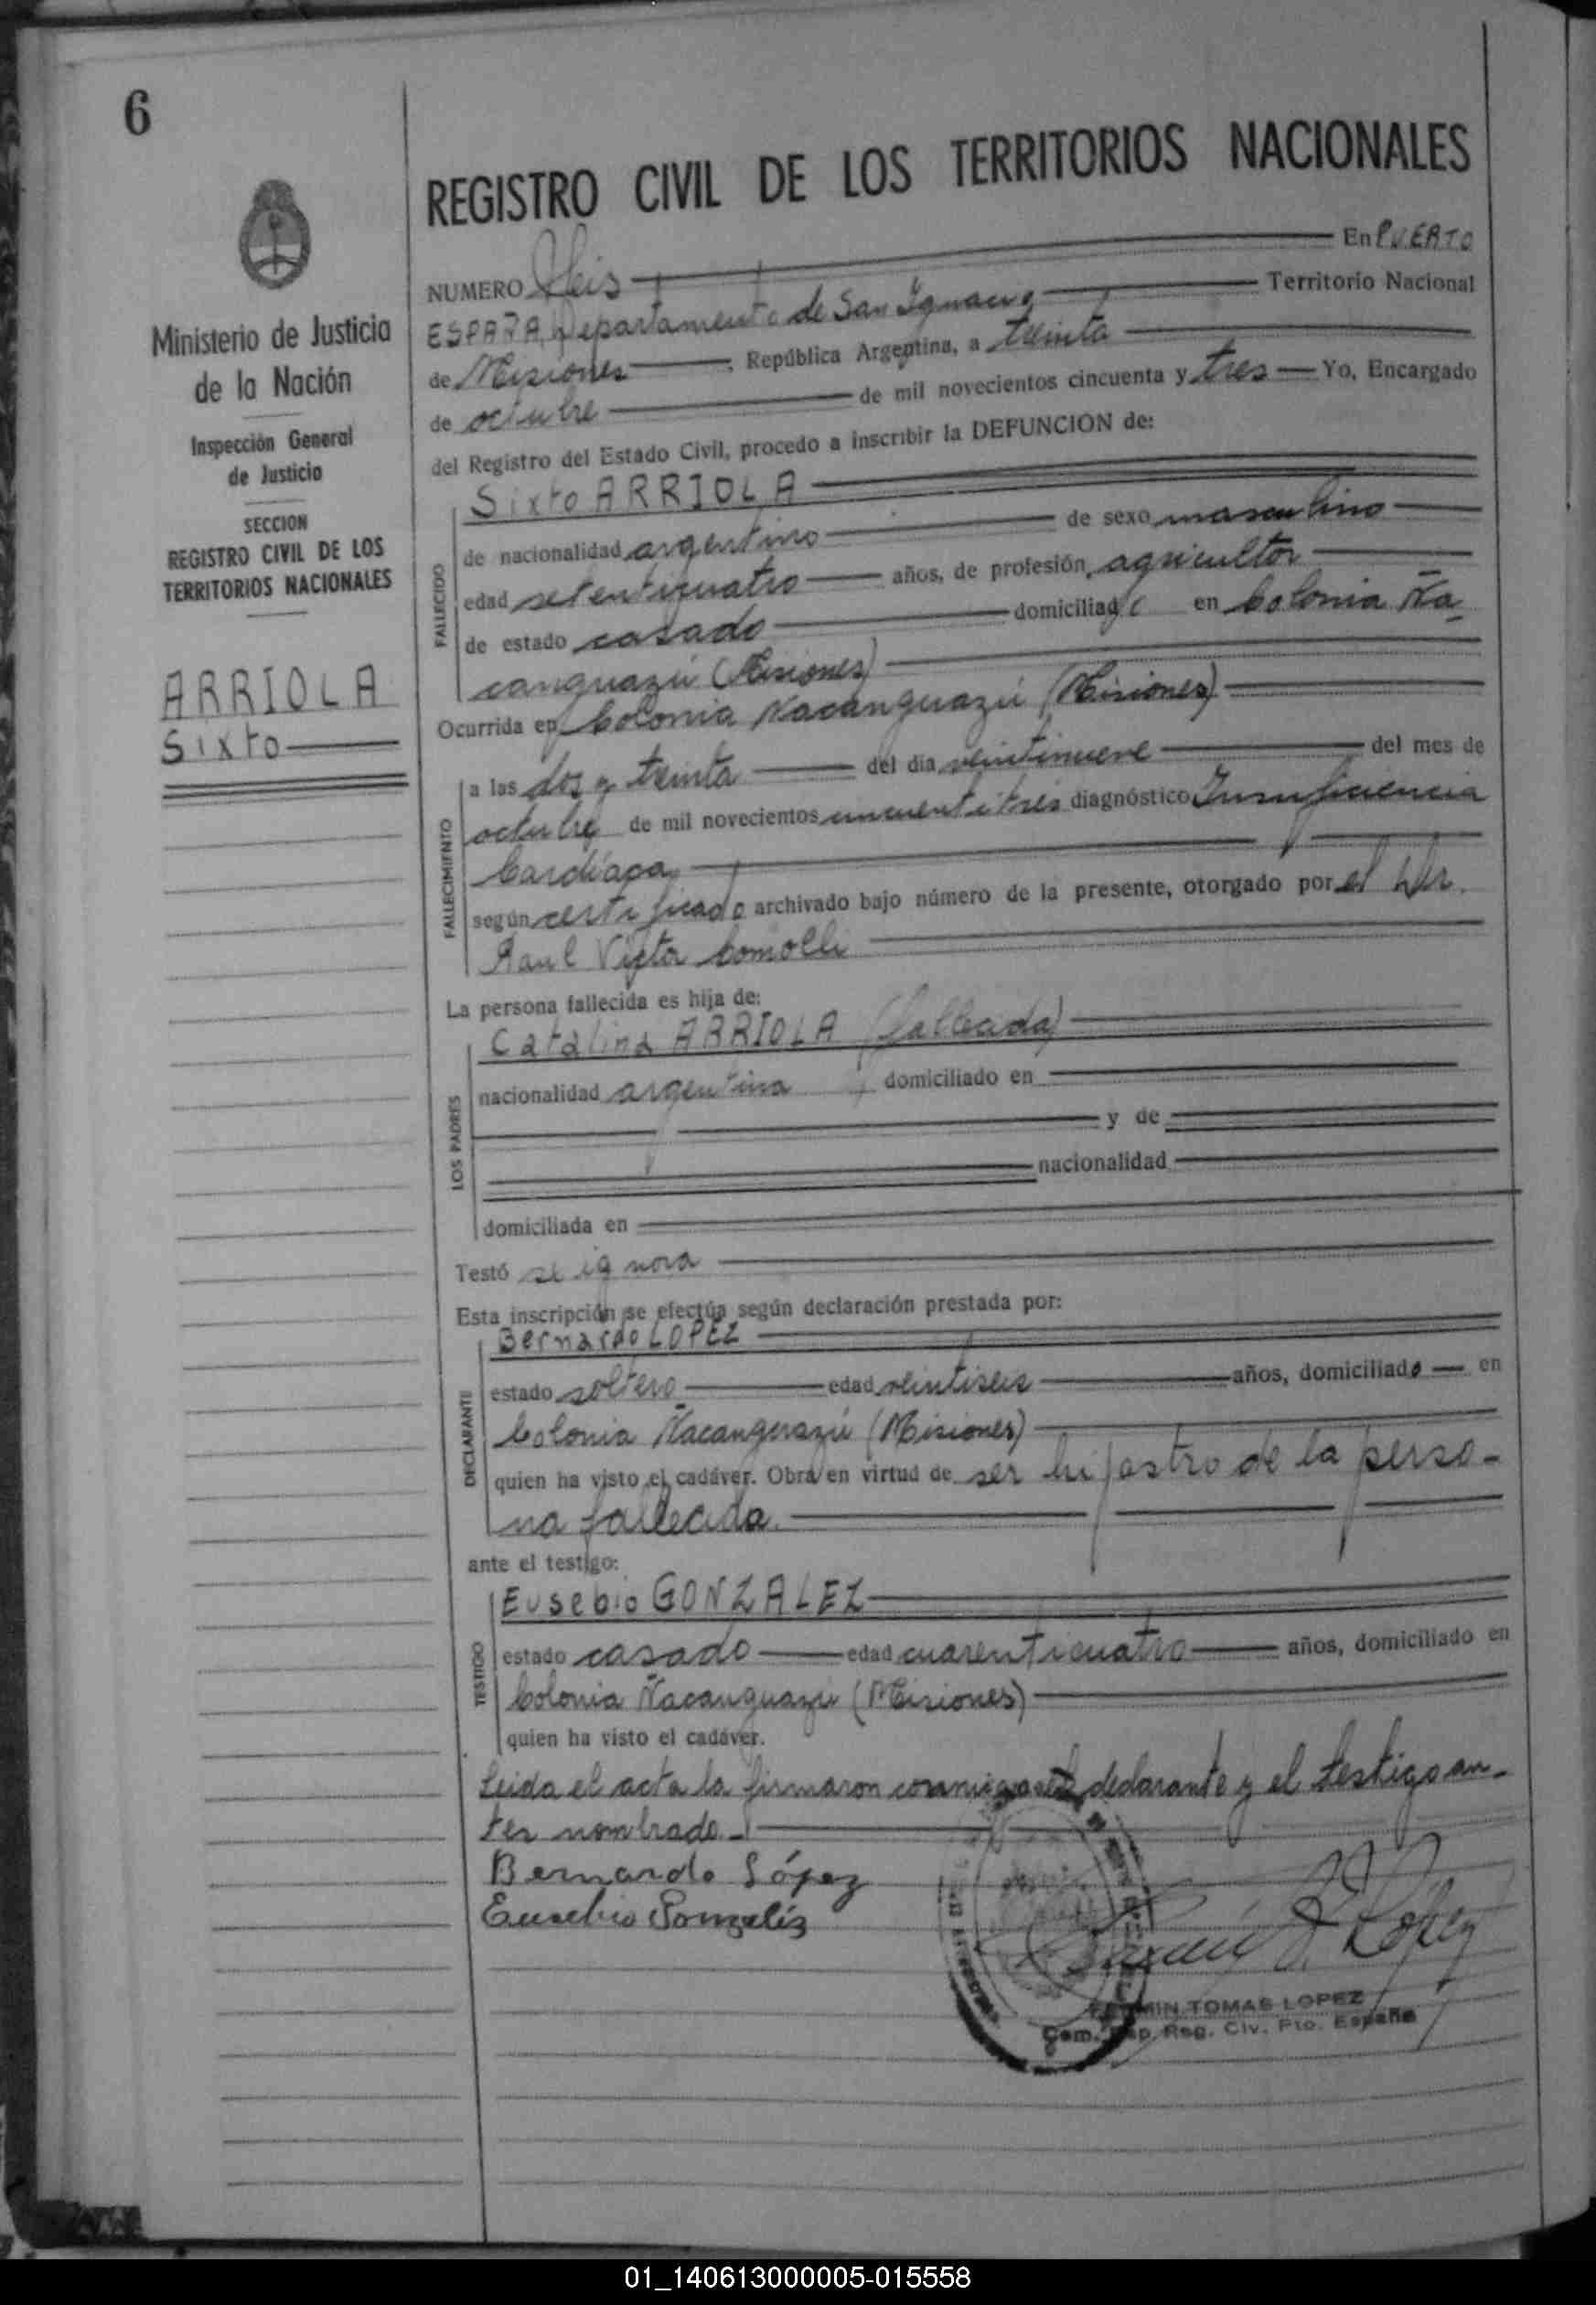 6
Ministerio de Justicia
de la Nación
Inspección General
de Justicia
SECCION
REGISTRO CIVIL DE LOS
TERRITORIOS NACIONALES
ARRIOLA
Sixto
REGISTRO CIVIL DE LOS TERRITORIOS NACIONALES
NUMERO Seis En PUERTO
ESPAÑA, Departamento de San Ignacio Territorio Nacional
de Misiones, República Argentina, a treinta
de octubre de mil novecientos cincuenta y tres Yo, Encargado
del Registro del Estado Civil, procedo a inscribir la DEFUNCION de:
FALLECIDO
Sixto ARRIOLA
de nacionalidad argentino de sexo masculino
edad setenticuatro años, de profesión, agricultor
de estado casado domiciliado en Colonia Ña
canguazú (Misiones)
Ocurrida en Colonia Ñacanguazú (Misiones)
FALLECIMIENTO
a las dos y treinta del día veintinueve del mes de
octubre de mil novecientos cincuentitrés diagnóstico Insuficiencia
Cardíaca
según certificado archivado bajo número de la presente, otorgado por el Dr.
Raul Victor Comolli
La persona fallecida es hija de:
LOS PADRES
Catalina ARRIOLA (fallecida)
nacionalidad argentina, domiciliado en
y de
nacionalidad
domiciliada en
Testó se ignora
Esta inscripción se efectúa según declaración prestada por:
DECLARANTE
Bernardo LOPEZ
estado soltero edad veintiseis años, domiciliado en
Colonia Ñacanguazú (Misiones)
quien ha visto el cadáver. Obra en virtud de ser hijastro de la perso-
na fallecida.
ante el testigo:
TESTIGO
Eusebio GONZALEZ
estado casado edad cuarenticuatro años, domiciliado en
Colonia Ñacanguazú (Misiones)
quien ha visto el cadáver.
Leida el acta la firmaron declarante y el testigo an-
tes nombrado.
Bernardo López
Eusebio Gonzaléz
López
FERMIN TOMAS LOPEZ
Reg. Civ. Pto. España
01_140613000005-015558